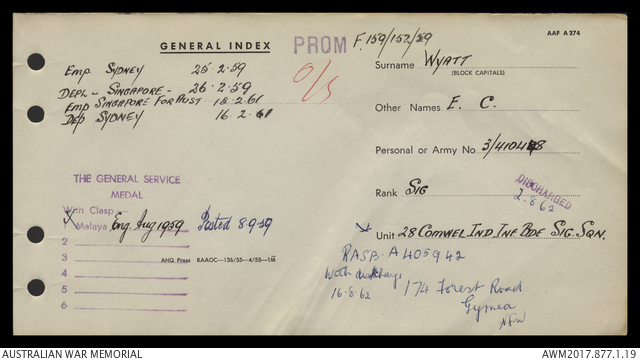 GENERAL INDEX
PROM
F.159/152/59
AAF A 274
Emp SYDNEY 25.2.59
DEPL - SINGAPORE - 26.2.59
Emp SINGAPORE For Aust 15.2.61
Dep SYDNEY 16 2 61
O/S
Surname WYATT
(BLOCK CAPITALS)
Other Names E. C.
Personal or Army No 3/410448
Rank SIG
DISCHARGED
2.8.62
Unit 28 COMWEL IND INF BDE SIG. SQN.
THE GENERAL SERVICE
MEDAL
With Clasp
1 Malaya Eng. Aug 1959 Posted 8-9-59
2
3
4
5
6
AHQ Press RAAOC—136/55—4/55—1M
RASB. A405942
With
16.8.62
174 Forest Road
Gymea
NSW
AUSTRALIAN WAR MEMORIAL
AWM2017.877.1.19